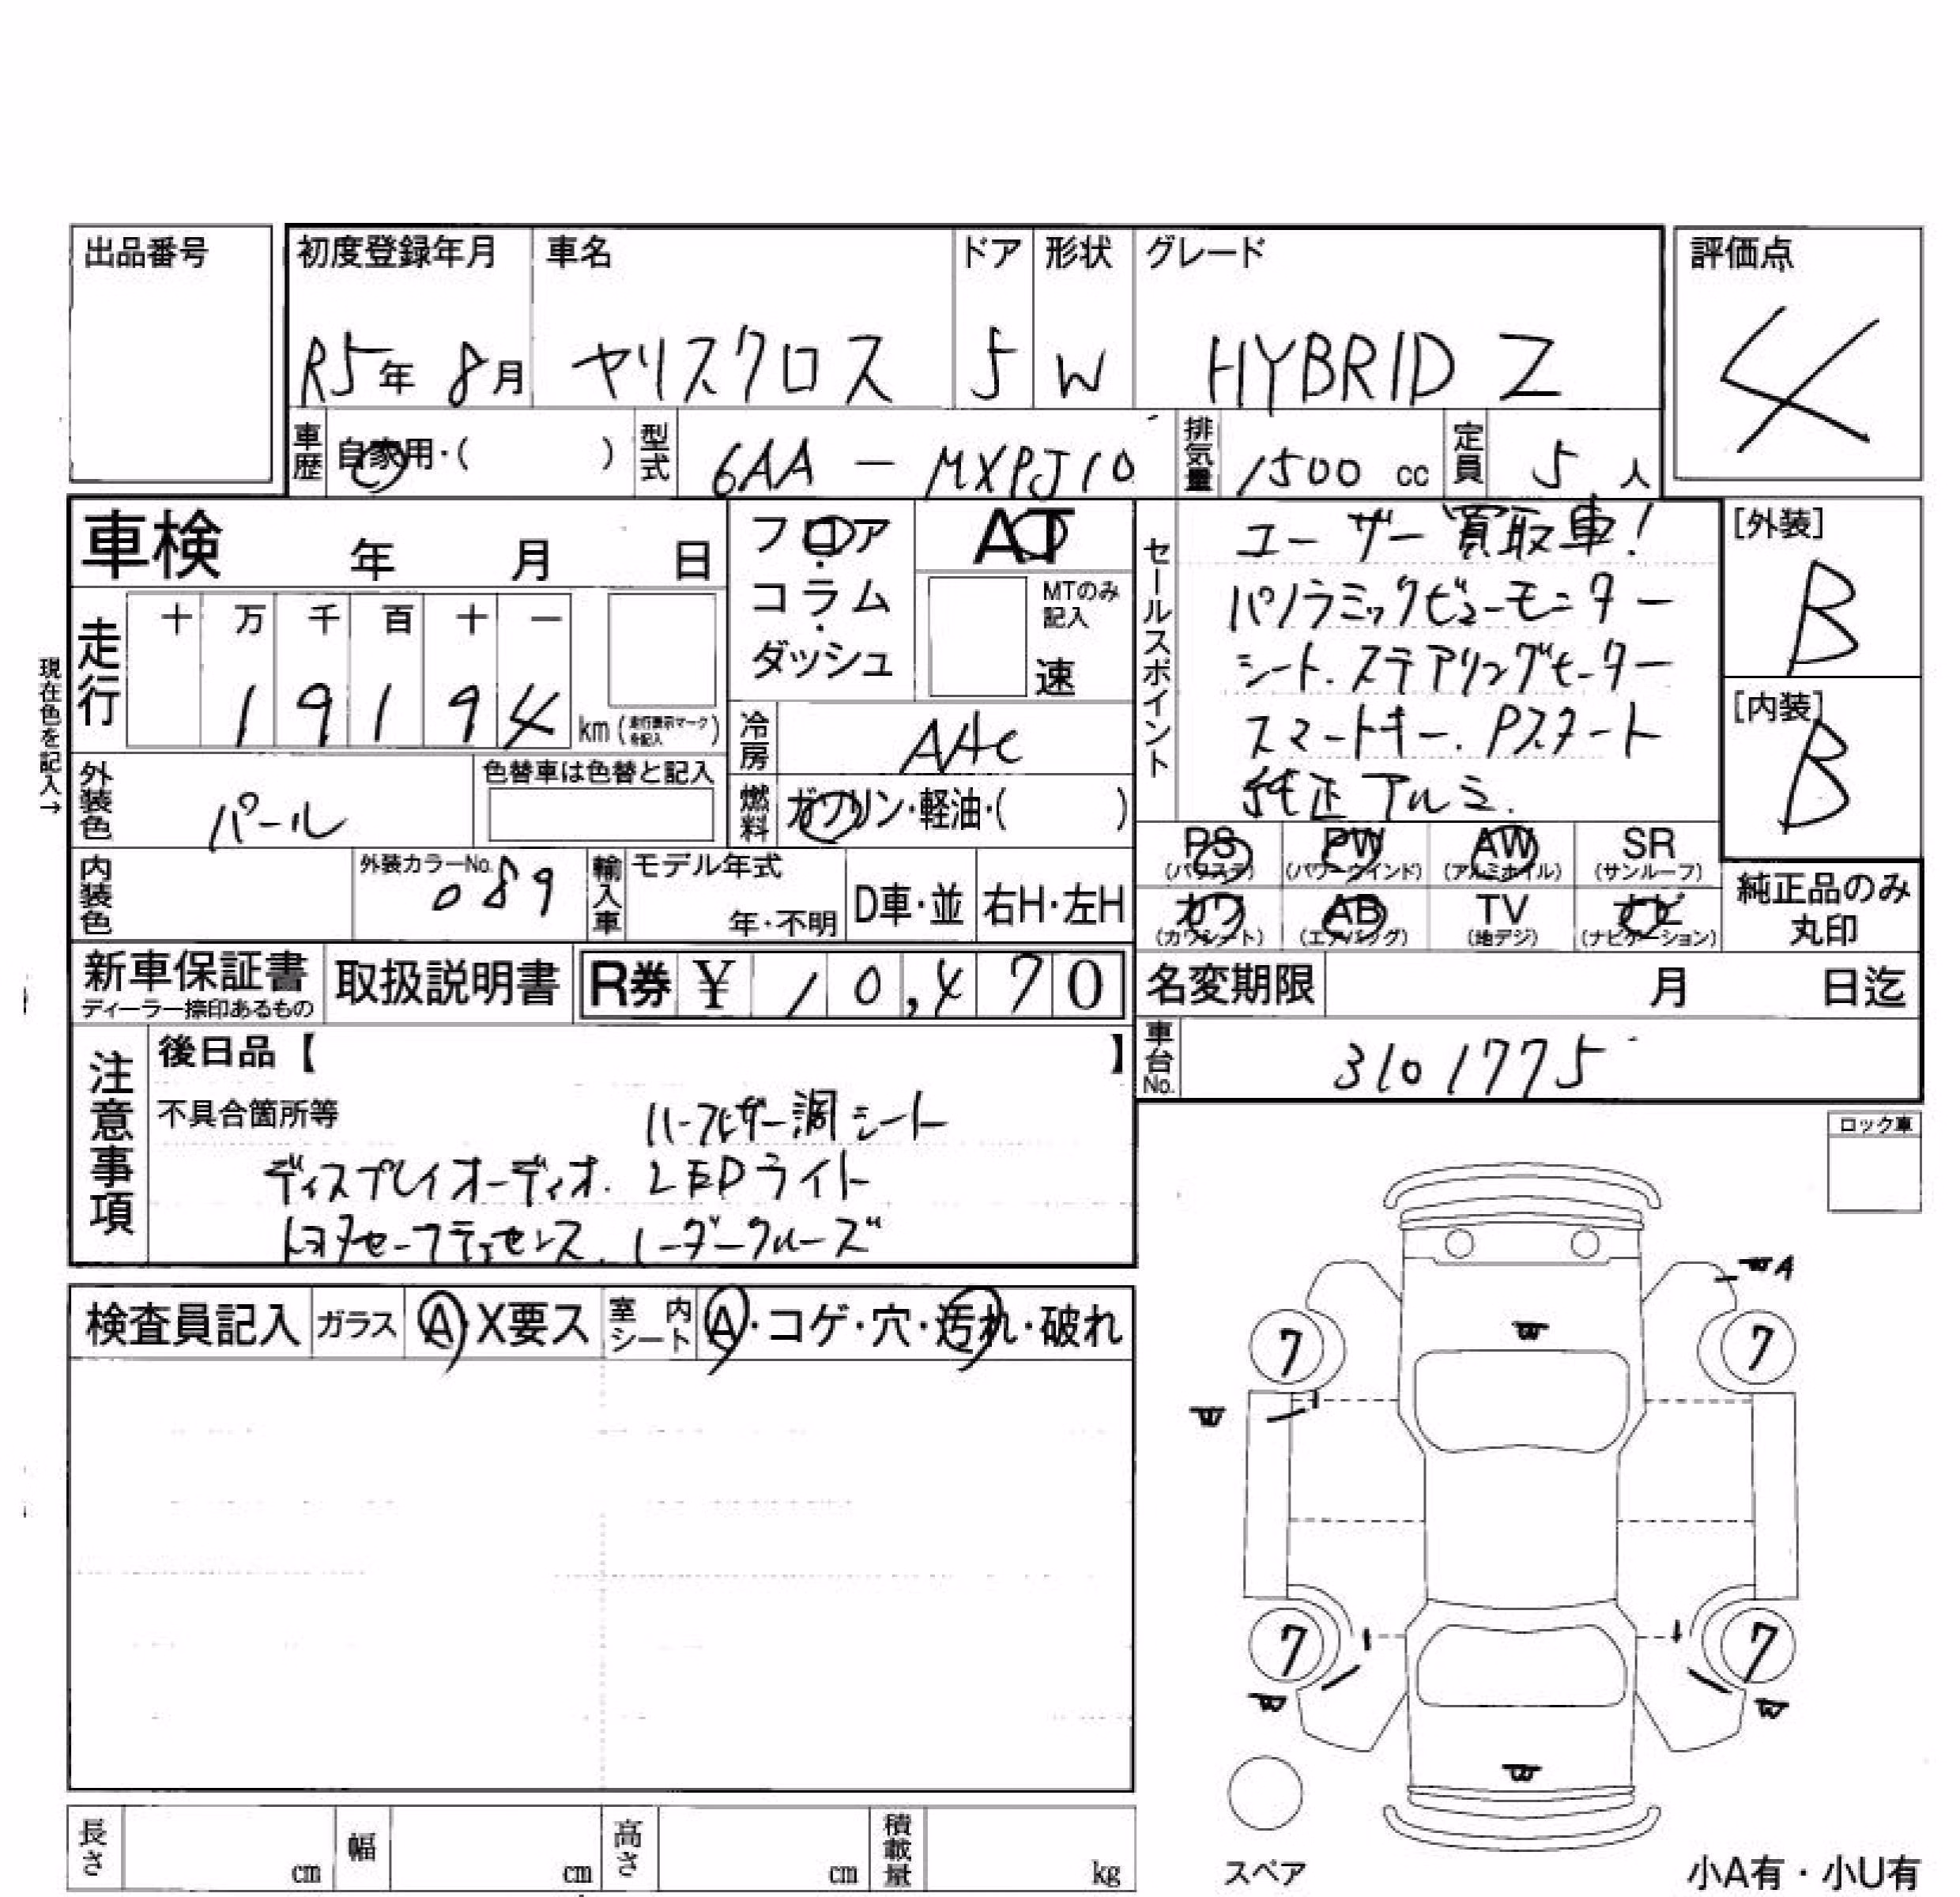 出品番号
初度登録年月 車名 ドア 形状 グレード 評価点
R5年 8月 ヤリスクロス 5 W HYBRID Z 4
車歴 自家用・( ) 型式 6AA - MXPJ10 排気量 1500 cc 定員 5 人
車検 年 月 日
フロア・コラム・ダッシュ
AT
MTのみ記入
速
セールスポイント
ユーザー買取車!
パノラミックビューモニター
シート.ステアリングヒーター
スマートキー. Pスタート
純正アルミ.
[外装]
B
[内装]
B
現在色を記入→
走行 十 万 千 百 十 一
1 9 1 9 4 km (走行表示マークを記入)
冷房 AAC
外装色 パール 色替車は色替と記入
燃料 ガソリン・軽油・( )
内装色 外装カラーNo. 089 輸入車 モデル年式 年・不明 D車・並 右H・左H
PS (パワステ) PW (パワーウインド) AW (アルミホイル) SR (サンルーフ)
カワ (カワシート) AB (エアバッグ) TV (地デジ) ナビ (ナビゲーション)
純正品のみ
丸印
新車保証書 ディーラー捺印あるもの 取扱説明書 R券 ¥ 10,470
名変期限 月 日迄
車台No. 3101775
注意事項
後日品【 】
不具合箇所等 ハーフレザー調シート
ディスプレイオーディオ. LEDライト
トヨタセーフティセンス. レーダークルーズ
ロック車
検査員記入 ガラス A・X要ス 室内シート A・コゲ・穴・汚れ・破れ
W A
7 W 7
W
7 7
W W
W
長さ cm 幅 cm 高さ cm 積載量 kg
スペア
小A有・小U有